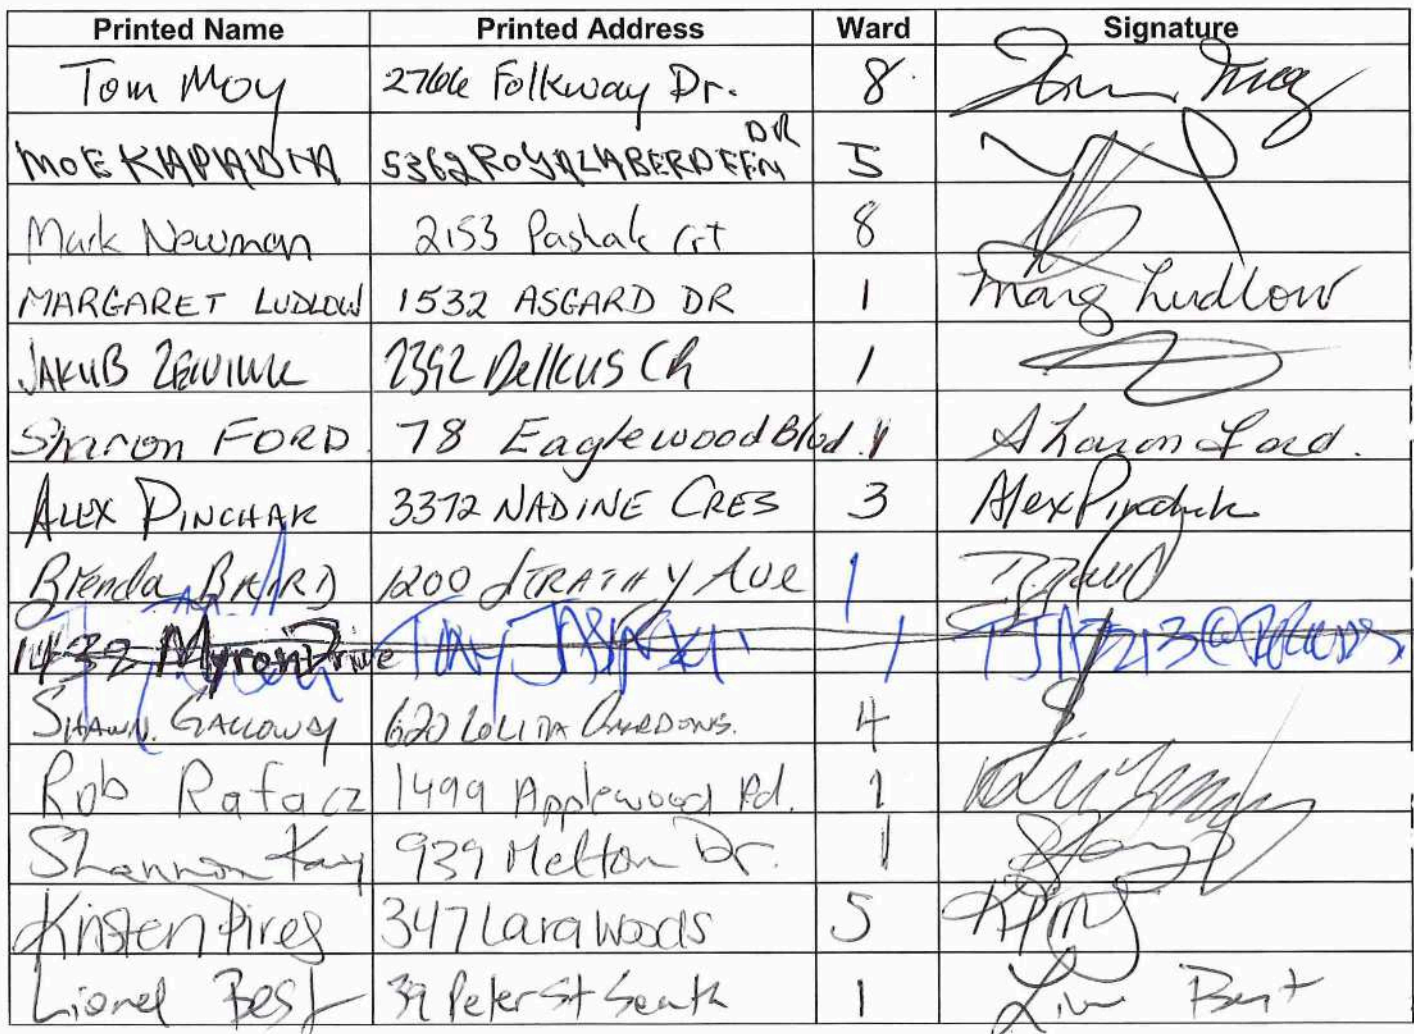 Printed Name Printed Address Ward Signature
Tom Moy 2766 Folkway Dr. 8 Tom Moy
MOE KAPADIA 5362 ROYAL ABERDEEN DR 5
Mark Newman 2153 Pashak Crt 8
MARGARET LUDLOW 1532 ASGARD DR 1 Marg Ludlow
JAKUB 2392 Dellcus CR 1
Sharon FORD 78 Eaglewood Blvd. 1 Sharon Ford.
ALEX PINCHAK 3372 NADINE CRES 3 Alex Pinchak
Brenda BAIRD 1200 STRATHY Ave 1 B Baird
1432 Myron Drive TONY 1
SHAWN GALLOWAY 620 LOLITA GARDENS. 4
Rob Rafacz 1499 Applewood Rd. 1
Shannon Kay 939 Melton Dr. 1 SKay
Kristen Pires 347 Lara Woods 5 KPires
Lionel Best 39 Peter St South 1 Best